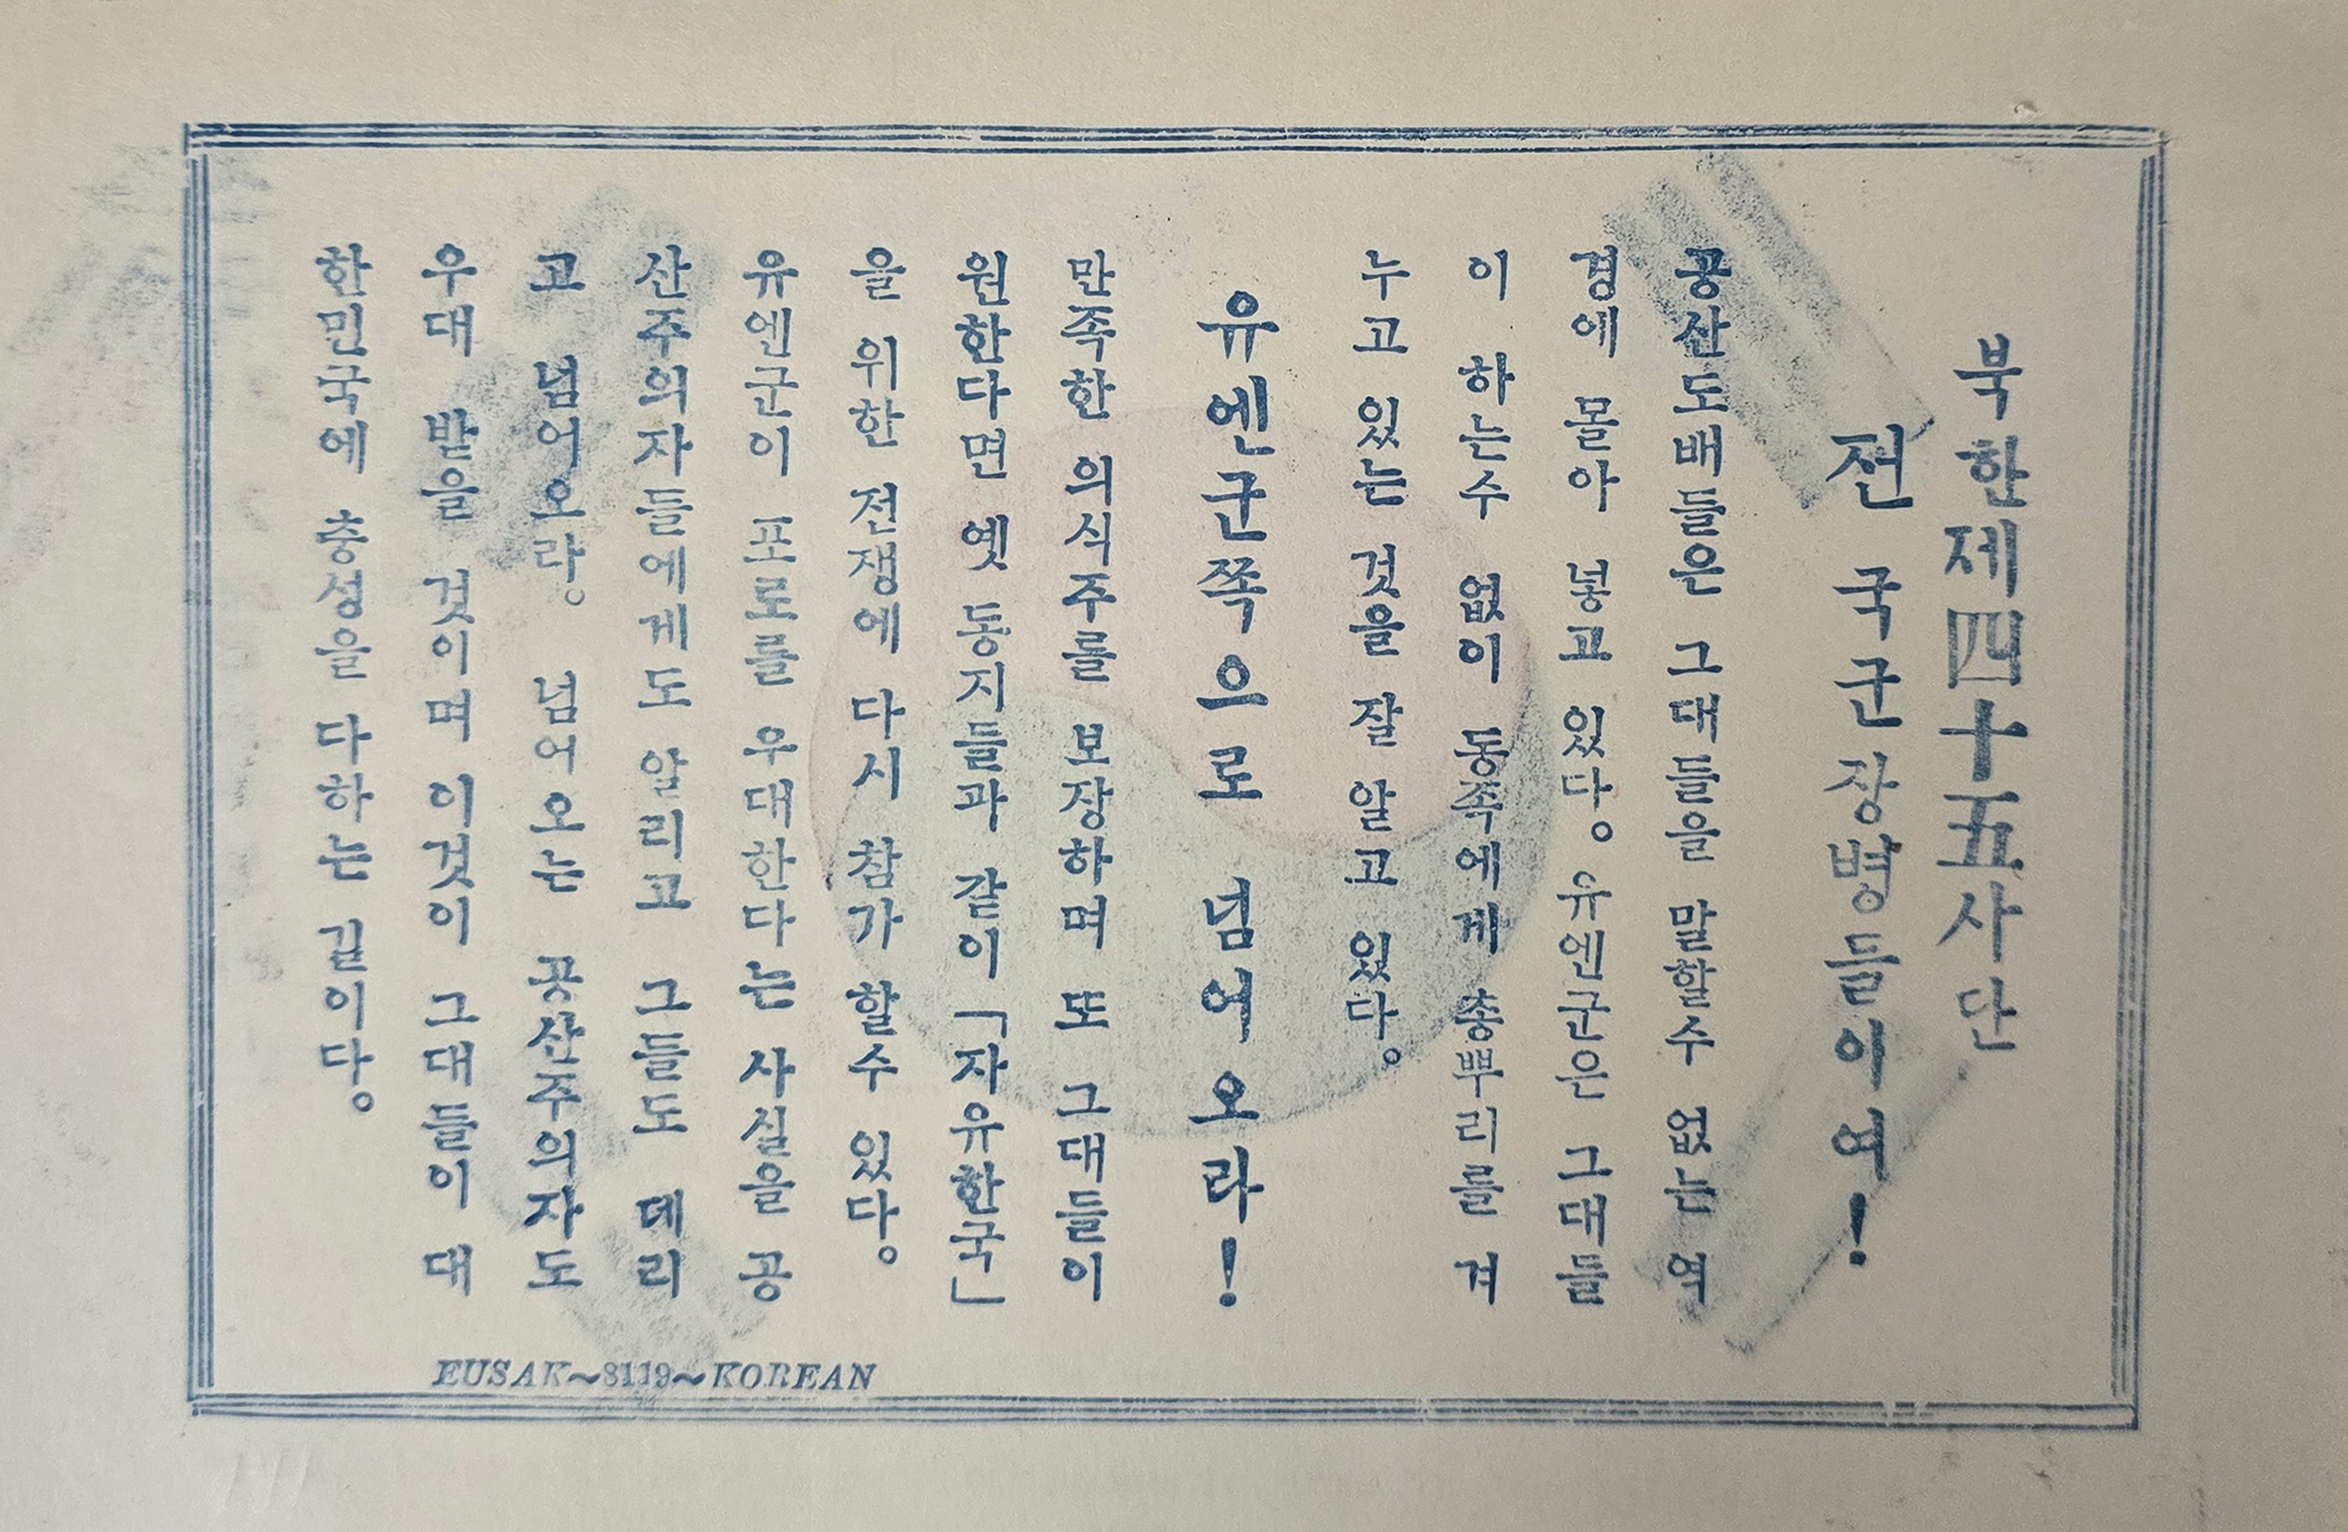 북한제四十五사단
전 국군장병들이여!
공산도배들은 그대들을 말할수 없는 역
경에 몰아 넣고 있다。유엔군은 그대들
이 하는수 없이 동족에게 총뿌리를 겨
누고 있는 것을 잘 알고 있다。
유엔군쪽으로 넘어오라!
만족한 의식주를 보장하며 또 그대들이
원한다면 옛 동지들과 같이「자유한국」
을 위한 전쟁에 다시 참가 할수 있다。
유엔군이 포로를 우대한다는 사실을 공
산주의자들에게도 알리고 그들도 데리
고 넘어오라。넘어오는 공산주의자도
우대 받을 것이며 이것이 그대들이 대
한민국에 충성을 다하는 길이다。
EUSAK~8119~KOREAN